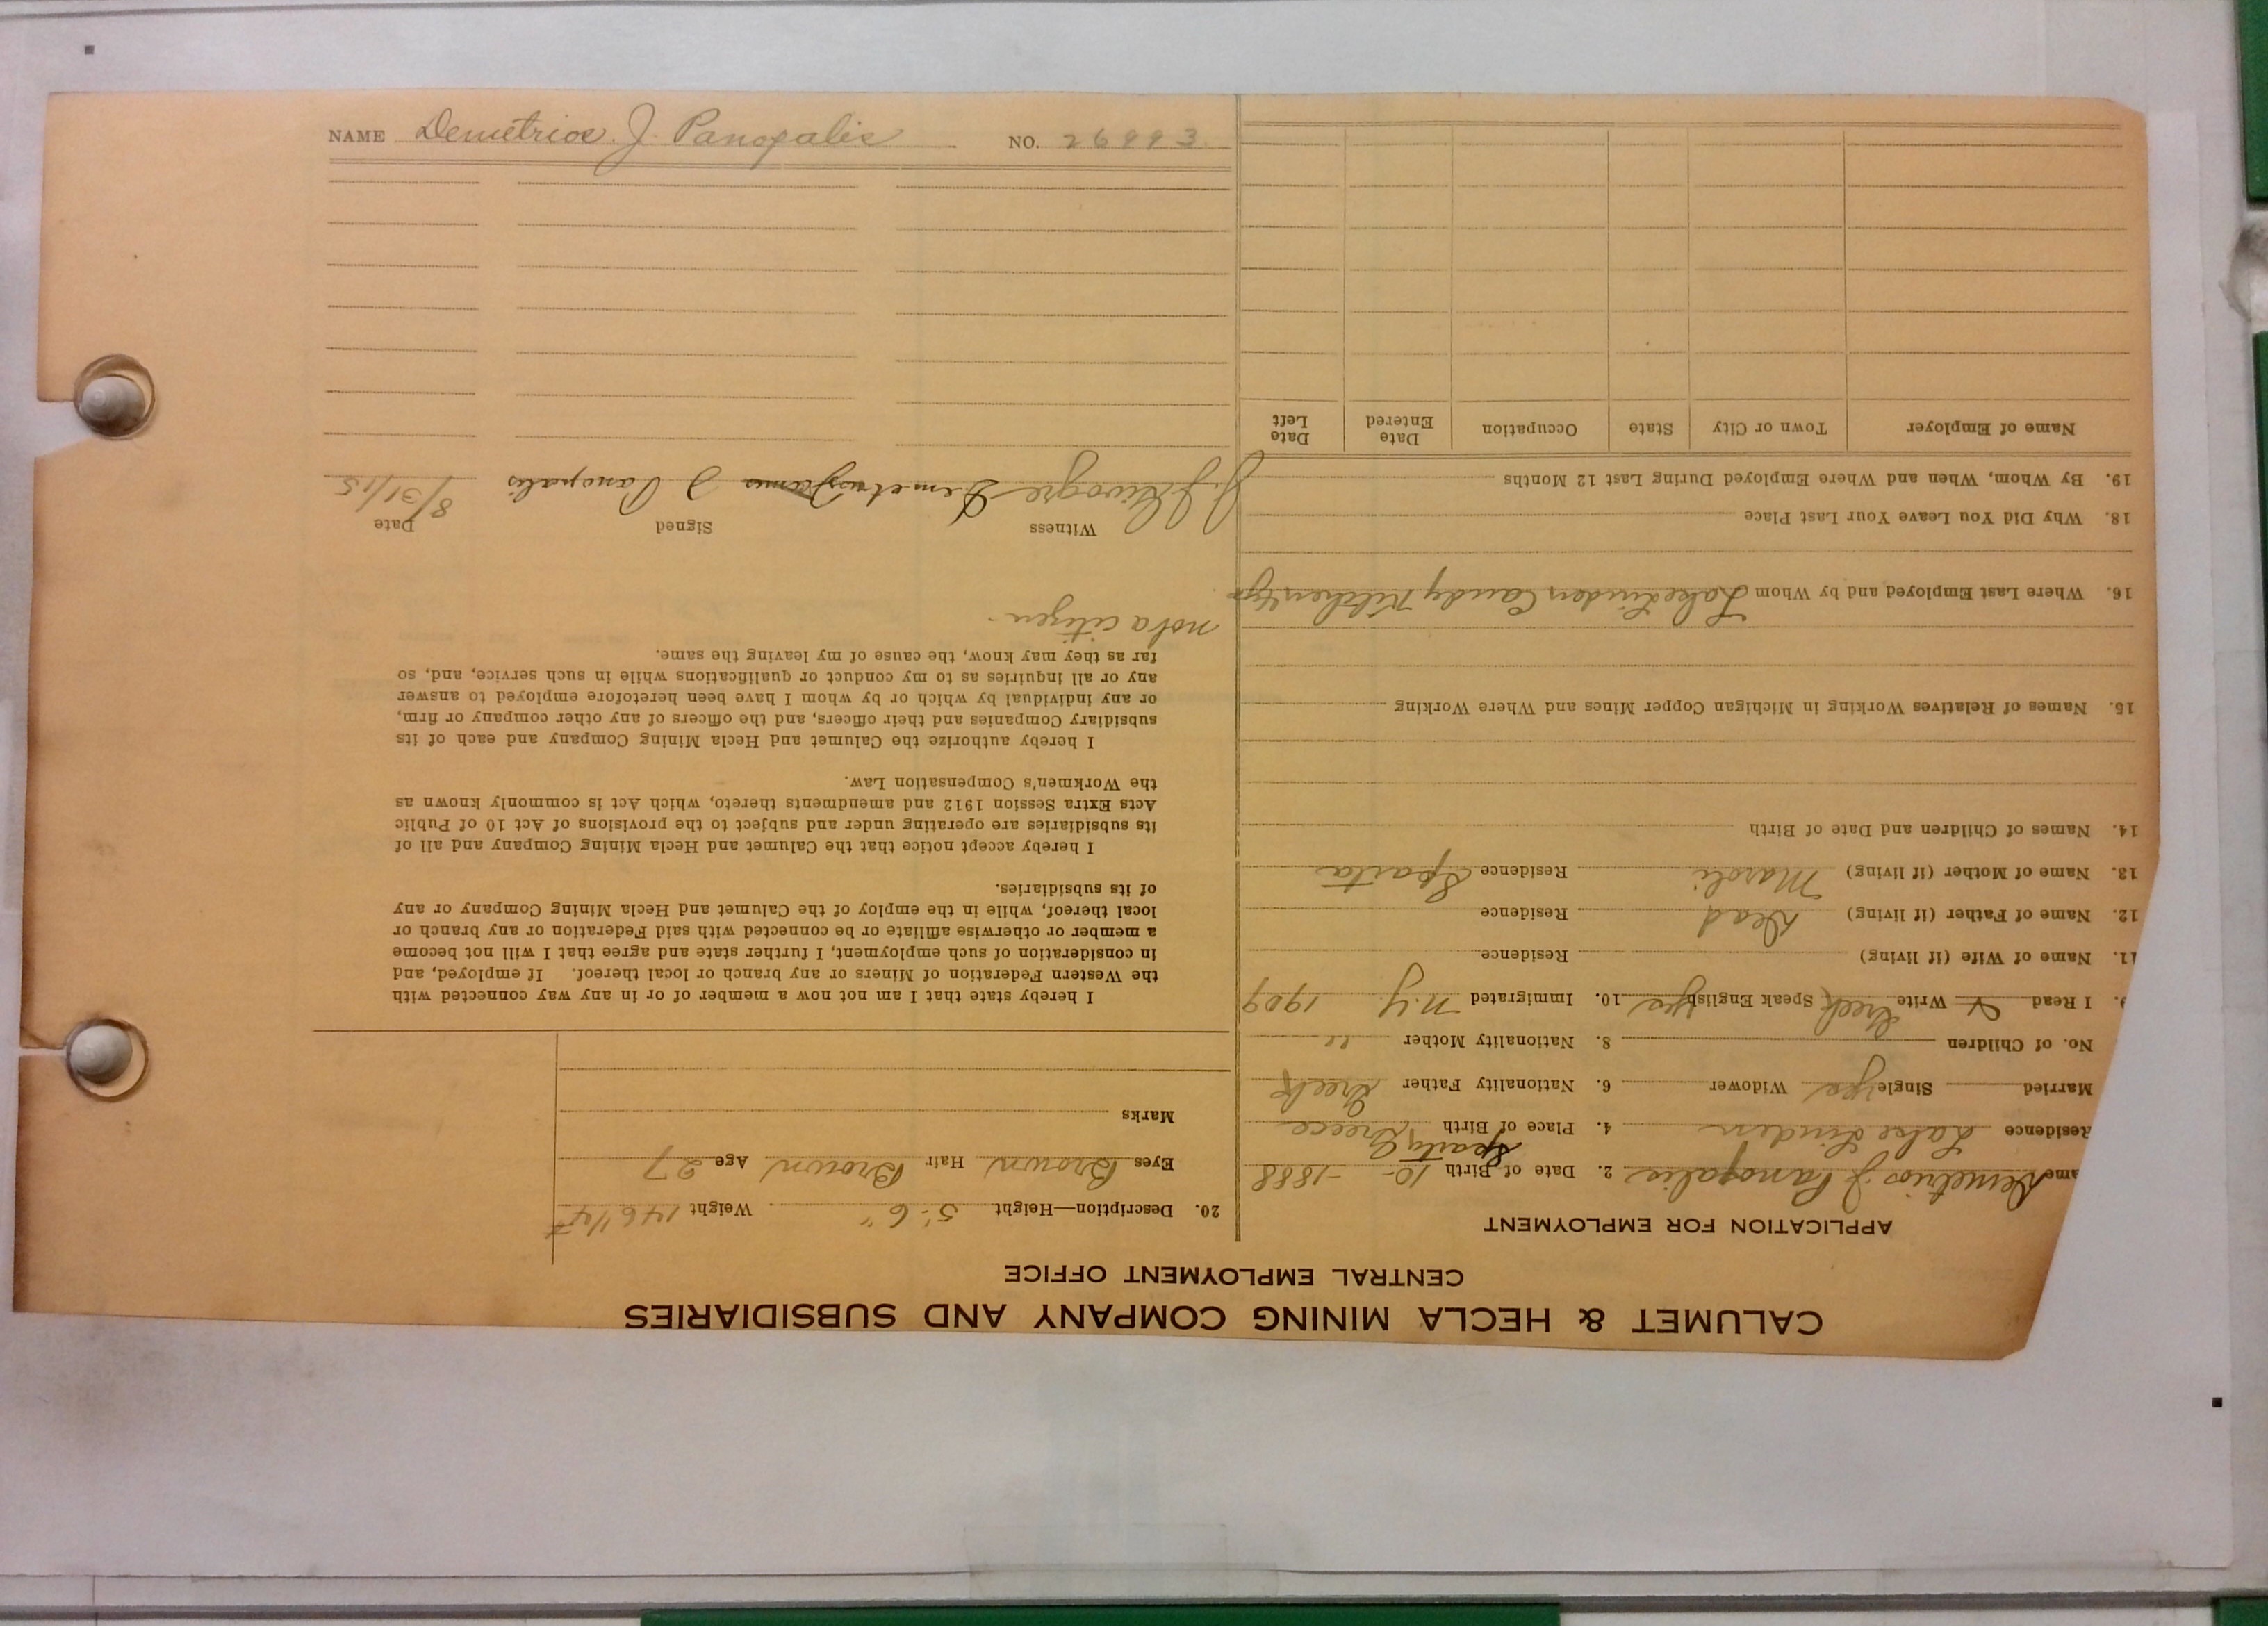 CALUMET & HECLA MINING COMPANY AND SUBSIDIARIES
CENTRAL EMPLOYMENT OFFICE
APPLICATION FOR EMPLOYMENT
ame Demetrios J Panopalis 2. Date of Birth 10- -1888
Residence Lake Linden 4. Place of Birth Sparty Greece
Married Single yes Widower 6. Nationality Father Greek
No. of Children 8. Nationality Mother "
9. I Read & Write Greek Speak English yes 10. Immigrated N.Y. 1909
11. Name of Wife (if living) Residence
12. Name of Father (if living) Dead Residence
13. Name of Mother (if living) Residence Sparta
14. Names of Children and Date of Birth
15. Names of Relatives Working in Michigan Copper Mines and Where Working
16. Where Last Employed and by Whom Lake Linden Candy Kitchen
18. Why Did You Leave Your Last Place
19. By Whom, When and Where Employed During Last 12 Months
Name of Employer Town or City State Occupation Date Entered Date Left
20. Description—Height 5'-6" Weight 146 1/4 #
Eyes Brown Hair Brown Age 27
Marks
I hereby state that I am not now a member of or in any way connected with
the Western Federation of Miners or any branch or local thereof. If employed, and
in consideration of such employment, I further state and agree that I will not become
a member or otherwise affiliate or be connected with said Federation or any branch or
local thereof, while in the employ of the Calumet and Hecla Mining Company or any
of its subsidiaries.
I hereby accept notice that the Calumet and Hecla Mining Company and all of
its subsidiaries are operating under and subject to the provisions of Act 10 of Public
Acts Extra Session 1912 and amendments thereto, which Act is commonly known as
the Workmen's Compensation Law.
I hereby authorize the Calumet and Hecla Mining Company and each of its
subsidiary Companies and their officers, and the officers of any other company or firm,
or any individual by which or by whom I have been heretofore employed to answer
any or all inquiries as to my conduct or qualifications while in such service, and, so
far as they may know, the cause of my leaving the same.
not a citizen-
Witness Signed Date
J Panopalis 8/31/15
NAME Demetrios. J. Panopalis NO. 26993